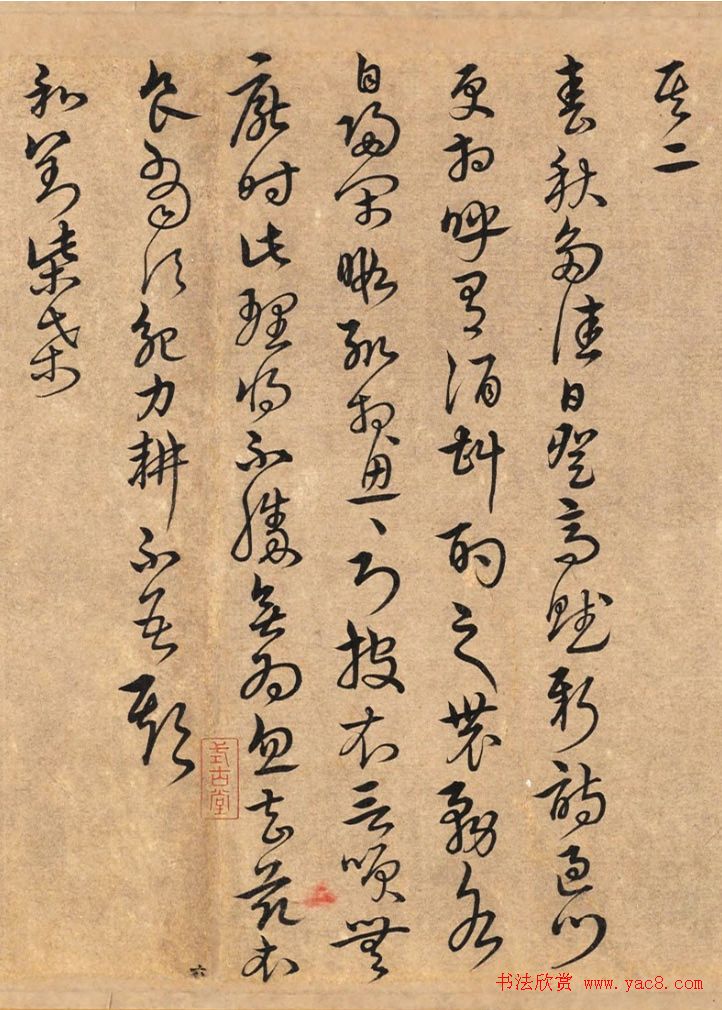 其二
春秋多佳日登高賦新詩過門
更相呼有酒斟酌之農務各
自歸閑暇輒相思〻乃披衣言笑無
厭時此理將不勝無為忽去茲衣
食當須紀力耕不吾欺
和劉柴桑
式古堂
六
书法欣赏 www.yac8.com